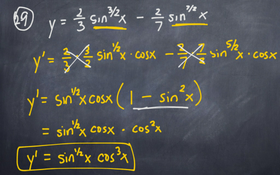 29 y = 2/3 sin^{3/2}x - 2/7 sin^{7/2}x
y' = 2/3 · 3/2 sin^{1/2}x · cosx - 2/7 · 7/2 sin^{5/2}x · cosx
y' = sin^{1/2}x cosx (1 - sin^2 x)
= sin^{1/2}x cosx · cos^2x
y' = sin^{1/2}x cos^3x